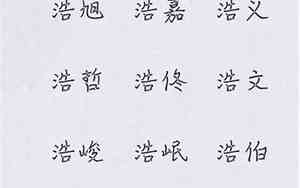 浩旭 浩嘉 浩义
浩哲 浩佟 浩文
浩峻 浩岷 浩伯